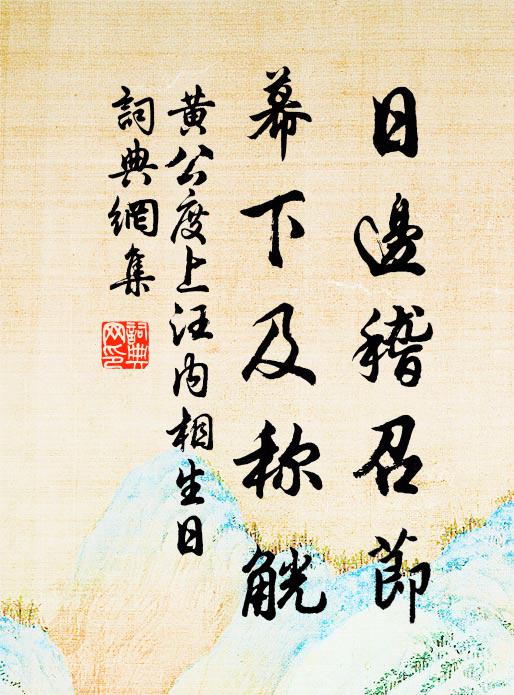 日邊稽召節
幕下及称觥
黄公度上汪内相生日
詞典網集
詞典網印